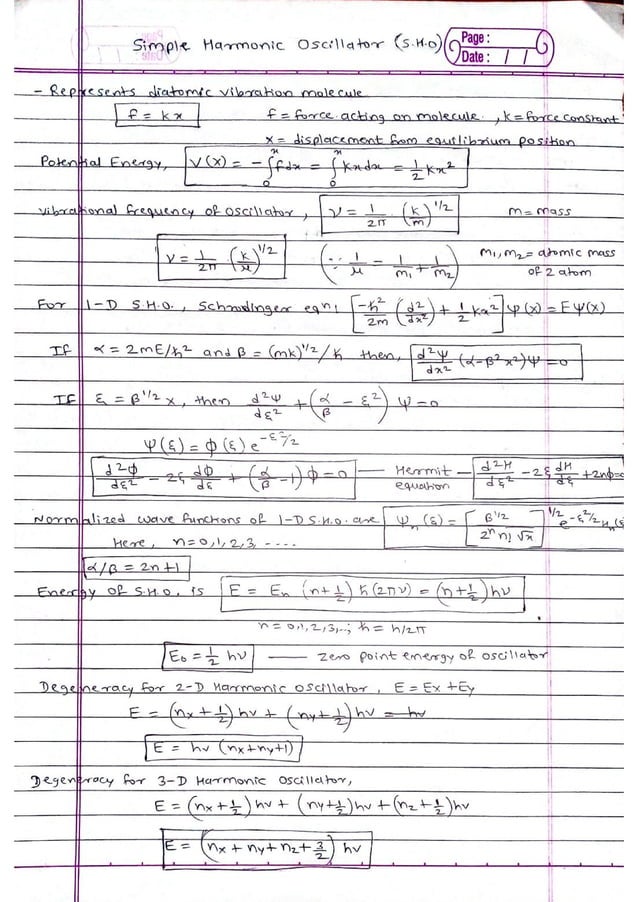 Simple Harmonic Oscillator (S.H.O)
Page :
Date : / /
- Represents diatomic vibration molecule
f = kx f = force acting on molecule , k = force constant
x = displacement from equilibrium position
Potential Energy, V(x) = -∫₀ˣ f dx = ∫₀ˣ kx dx = 1/2 kx²
Vibrational frequency of oscillator, ν = 1/2π (k/m)^1/2 m = mass
ν = 1/2π (k/μ)^1/2 (∵ 1/μ = 1/m₁ + 1/m₂) m₁, m₂ = atomic mass
of 2 atom
For 1-D S.H.O., Schrodinger eqn; [-ħ²/2m (d²/dx²) + 1/2 kx²] ψ(x) = Eψ(x)
If α = 2mE/ħ² and β = (mk)^1/2/ħ then, d²ψ/dx² (α-β²x²)ψ = 0
IF ξ = β^1/2 x, then d²ψ/dξ² + (α/β - ξ²) ψ = 0
ψ(ξ) = φ(ξ) e^-ξ²/2
d²φ/dξ² - 2ξ dφ/dξ + (α/β - 1) φ = 0 — Hermit — d²H/dξ² - 2ξ dH/dξ + 2nφ = 0
equation
Normalized wave functions of 1-D S.H.O. are ψₙ(ξ) = [β^1/2 / 2ⁿ n! √x]^1/2 e^-ξ²/2 Hₙ(ξ
Here, n = 0, 1, 2, 3, ....
α/β = 2n+1
Energy of S.H.O. is E = Eₙ (n+1/2) ħ(2πν) = (n+1/2)hν
n = 0,1,2,3,..; ħ = h/2π
E₀ = 1/2 hν — zero point energy of oscillator
Degeneracy for 2-D Harmonic oscillator, E = Ex + Ey
E = (nx + 1/2) hν + (ny + 1/2) hν = hν
E = hν (nx+ny+1)
Degeneracy for 3-D Harmonic Oscillator,
E = (nx + 1/2) hν + (ny + 1/2) hν + (nz + 1/2) hν
E = (nx + ny + nz + 3/2) hν